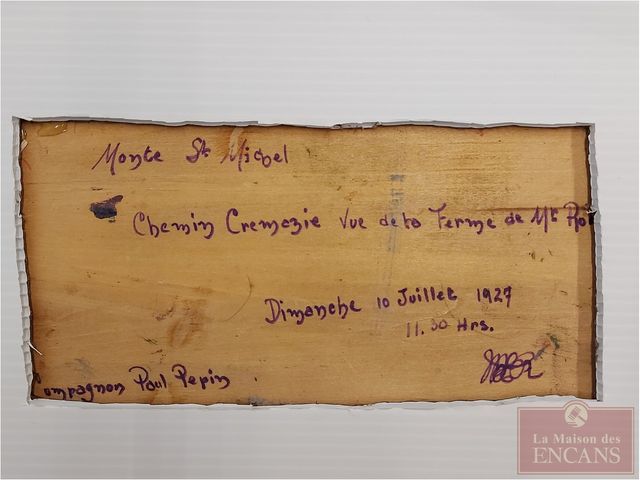 Monte St Michel
Chemin Cremazie Vue de la Ferme de Mr
Dimanche 10 Juillet 1927
11.30 Hrs.
ompagnon Paul Pepin
La Maison des
ENCANS